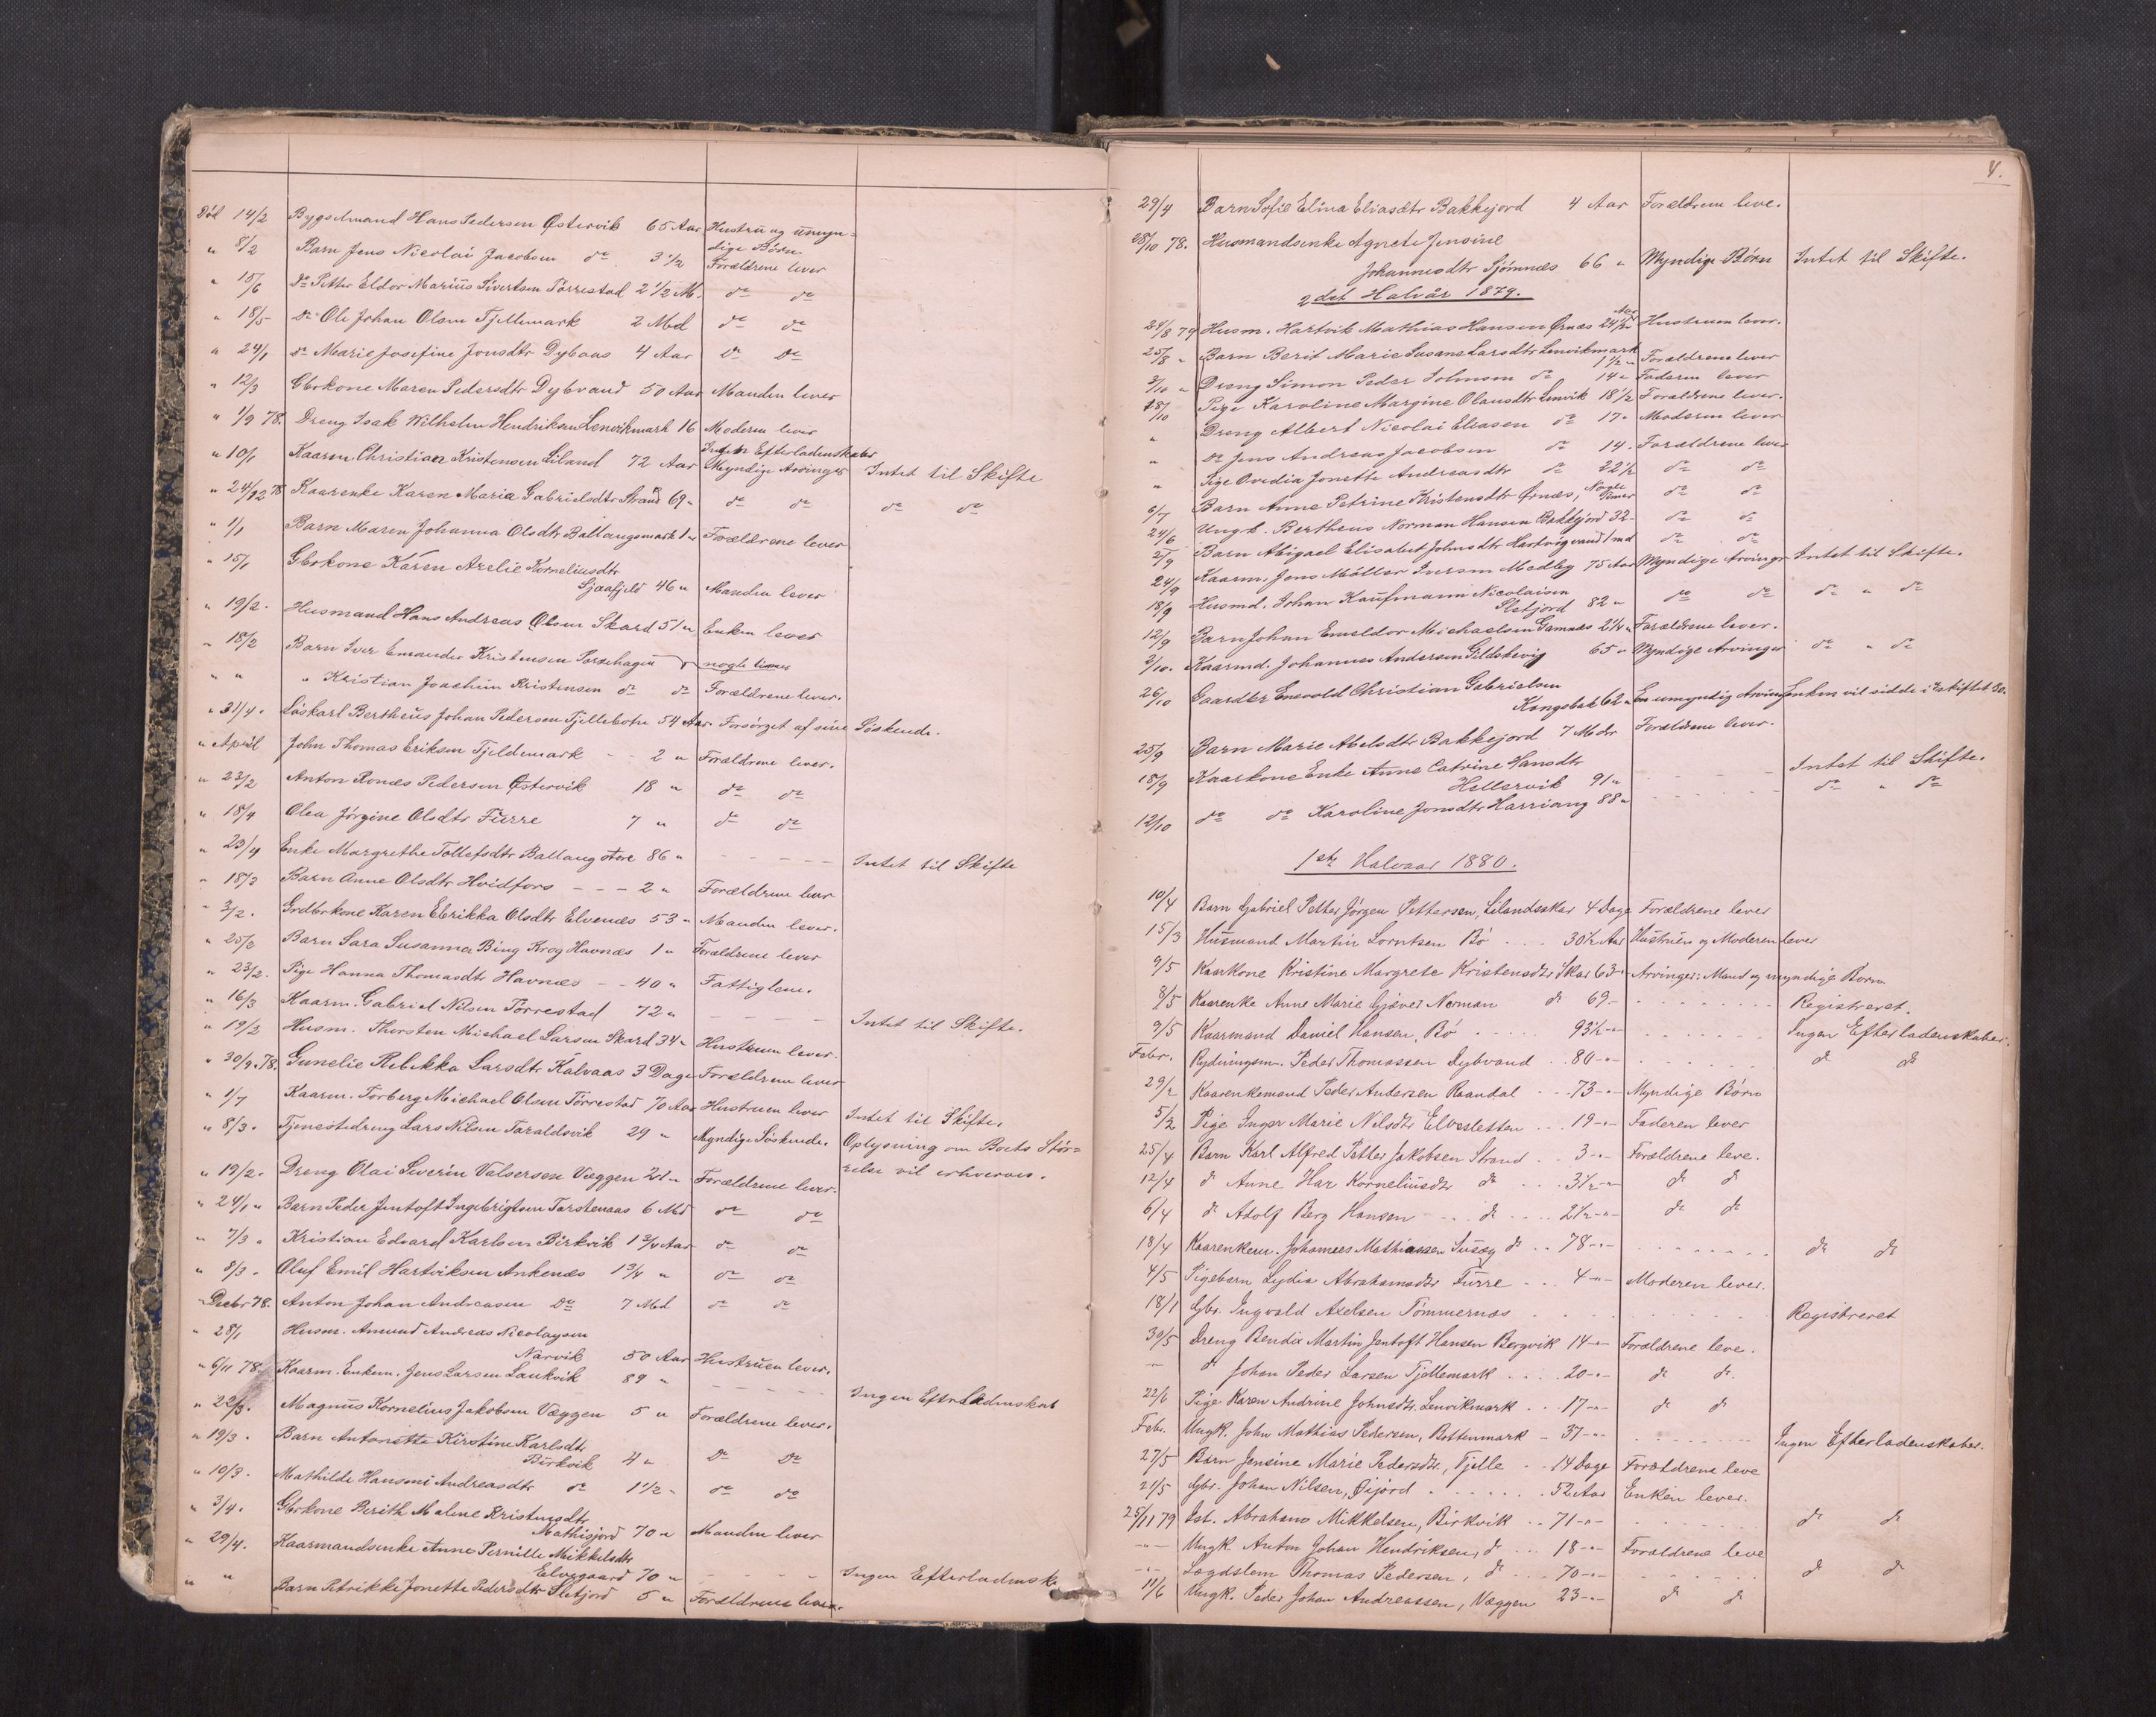 Död 14/2 Bygselmand Hans Pedersen Østervik 65 Aar Hustru og umyn-
dige Børn
" 8/2 Barn Jens Nicolai Jacobsen do 3 1/2 Forældrene lever
" 18/6 do Petter Eldor Marius Sivertsen Törrestad 2 1/2 M. do do
" 18/5 do Ole Johan Olsen Tjellemark 2 Md do do
" 24/1 do Marie Josefine Jonsdtr Dybaas 4 Aar do do
" 12/3 Gbrkone Maren Pedersdtr Dybvand 50 Aar Manden lever
" 1/9 78. Dreng Isak Wilhelm Hendriksen Lenvikmark 16 Moderen lever
Ingen Efterladenskaber
" 10/1 Kaarm. Christian Kristensen Liland 72 Aar Myndige Arvinger Intet til Skifte
" 24/12 78 Kaarenke Karen Maria Gabrielsdtr Strand 69 " do do do do
" 1/1 Barn Maren Johanna Olsdtr Ballangsmark 1 " Forældrene lever
" 15/1 Gbrkone Karen Azelie Korneliusdtr
Sjaafjeld 46 " Manden lever
" 19/2. Husmand Hans Andreas Olsen Skard 51 " Enken lever
" 18/2 Barn Iver Emander Kristensen Porsehagen nogle timer
" " " Kristian Joachim Kristensen do do Forældrene lever.
" 31/4. Løskarl Bertheus Johan Pedersen Tjellebotn 54 Aar Forsørget af sine Söskende.
" April John Thomas Eriksen Tjeldemark - - 2 " Forældrene lever.
" 23/2 Anton Ronæs Pedersen Østervik 18 " do do
" 18/4 Olea Jörgine Olsdtr Furre 7 " do do
" 23/4 Enke Margrethe Tollefsdtr Ballang 86 " - - - - - Intet til Skifte
" 18/3 Barn Anne Olsdtr Hvidfors - - - 2 " Forældrene lever
" 3/2. Grdbrkone Karen Elerikka Olsdtr Elvenes 53 " Manden lever.
" 25/2 Barn Sara Susanna Bing Krog Havnæs 1 " Forældrene lever
" 23/2. Pige Hanna Thomasdtr Havnæs - - 40 " Fattiglem.
" 16/3 Kaarm. Gabriel Nilsen Törrestad 72 " - - - - - Intet til Skifte.
" 19/2 Husm. Thorsten Michael Larsen Skard 34 " Hustruen lever.
" 30/9. 78. Gunelie Rebekka Larsdtr Kalvaas 3 Dage Forældrene lever
" 1/7 Kaarm. Torberg Michael Olsen Törrestad 70 Aar Hustruen lever Intet til Skifte.
" 8/3. Tjenestedreng Lars Nilsen Taraldsvik 29 " Myndige Söskende. Oplysning om Boets Stör-
relse vil erhverves.
" 19/2. Dreng Olai Severin Valsersen Væggen 21 " Forældrene lever.
" 24/1 " Barn Peder Jentoft Ingebrigtsen Torstenaas 6 Md do do
" 7/3 " Kristian Edvard Karlsen Birkvik 1 3/4 Aar do do
" 8/3 " Oluf Emil Hartviksen Ankenæs 1 3/4 " do do
" Decbr 78. Anton Johan Andreasen do 7 Md do do
" 28/1 Husm. Amund Andreas Nicolaysen
Narvik 50 Aar Hustruen lever.
" 6/11 78. Kaarm. Enkem. Jens Larsen Laukvik 89 " - - - - - Ingen Efterladenskab
" 22/3. Magnus Kornelius Jakobsen Væggen 5 " Forældrene lever.
" 19/3. Barn Antonette Kirstine Karlsdtr
Birkvik 4 " do do
" 10/3. Mathilde Hansmi Andreasdtr do 1 1/2 " do do
" 3/4. Gbrkone Berith Malene Kristensdtr
Mathisjord 70 " Manden lever
" 29/4. Kaarmandsenke Anne Pernille Mikkelsdtr
Elvegaard 70 " - - - - Ingen Efterladensk.
" " Barn Petrikke Jonette Pedersdtr Sletjord 5 " Forældrene lever.
4.
29/4 Barn Sofie Elina Eliasdtr Bakkejord 4 Aar Forældrene leve.
28/10 78. Husmandsenke Agnete Jensine
Johannesdtr Sjömnæs 66 " Myndige Børn Intet til Skifte.
2det Halvår 1879.
24/8 79 Husm. Hartvik Mathias Hansen Ørnæs 24 1/2 Aar Hustruen lever.
25/8 " Barn Berit Marie Susane Larsdtr Lenvikmark
1 1/2 " Forældrene lever
3/10 " Dreng Simon Peder Johnsen do 14 " Faderen lever
18/10 Pige Karoline Margine Olausdtr Lenvik 18 1/2 Forældrene lever.
" Dreng Albert Nicolai Eliasen do 17 " Moderen lever
" do Jens Andreas Jacobsen do 14. Forældrene lever
" Pige Ovedia Jonette Andreasdtr do 22 1/2 do do
6/7 Barn Anne Petrine Kristensdtr Ørnæs, Nogle timer do do
24/6 Ungk. Bertheus Norman Hansen Bakkejord 32 - do do
2/9 Barn Abigael Elisabet Johnsdtr Hartvigvand 1 md do do
24/9 Kaarm. Jens Möller Iversen Medby 75 Aar Myndige Arvinger Intet til Skifte.
18/9 Husmd. Johan Kaufmann Nicolaisen
Sletjord 82 " do do do " do
12/9 Barn Johan Emeldor Michaelsen Gamnæs 2 1/4 " Forældrene lever.
2/10. Kaarmd. Johannes Andersen Gildskevig 65 " Myndige Arvinger do " do
26/10 Gaardbr Enevold Christian Gabrielsen
Kongsbak 62 " En umyndig Arving Enken vil sidde i uskiftet Bo.
25/9 Barn Marie Abelsdtr Bakkejord 7 Mdr Forældrene lever.
18/9 Kaarkone Enke Anne Catrine Hansdtr
Hellervik 91 " - - - - - Intet til Skifte.
12/10 do do Karoline Jonsdtr Harriang 88 " - - - - - do " do
1ste Halvaar 1880.
10/4 Barn Gabriel Petter Jörgen Pettersen, Lilandsskar 4 Dage Forældrene lever
15/3 Husmand Martin Lorntsen Bö . . . 30 1/2 Aar Hustruen og Moderen lever
9/5 Kaarkone Kristine Margrete Kristensdtr Skar 63 - Arvinger: Mand og myndige Born
8/5 Kaarenke Anne Marie Gjöver Norman do 69 - - - - - - Registreret.
9/5 Kaarmand Daniel Hansen, Bö . . . . 93 1/2 - " - . . . . . Ingen Efterladenskaber.
Febr. Rydningsm. Peder Thomassen Dybvand . . 80 - " - . . . . do do
29/2 Kaarenkemand Peder Andersen Raandal . . . 73 - " - Myndige Börn
5/2 Pige Inger Marie Nilsdtr Elvesletten . . . 19 - " - Faderen lever
25/4 Barn Karl Alfred Petter Jakobsen Strand . . 3 - " - Forældrene leve.
12/4 do Anne Har Korneliusdtr do . . . 3 1/2 - " - do do
6/4 do Adolf Berg Hansen . . . do . . . . 2 1/2 - " - do do
18/4 Kaarenkem. Johannes Mathiassen Susæg do . . 78 - " - . . . . . . . do do
4/5 Pigebarn Lydia Abrahamsdtr Furre . . . 4 - " - Moderen lever.
18/1 Gbr. Ingvald Axelsen Tömmernæs . . . . . . . . Registreret
30/5 Dreng Bendix Martin Jentoft Hansen Bergvik 14 - " - Forældrene leve.
- " - do Johan Peder Larsen Tjellemark . . . . 20 - " - do do.
22/6 Pige Karen Andrine Johnsdtr. Lenvikmark . . 17 - " - do do
Febr. Ungk. John Mathias Pedersen, Bottenmark - 37 - " - . . . . . . . Ingen Efterladenskaber.
27/5 Barn Jensine Marie Pedersdtr, Tjelle . . 14 Dage Forældrene leve
21/5 Gbr. Johan Nilsen, Öijord . . . . . . . 52 Aar Enken lever.
25/11 79 Ist. Abrahams Mikkelsen, Birkvik . . 71 - " - . . . . . . do do
- " - Ungk. Anton Johan Hendriksen, do . . . 18 - " - Forældrene leve
- " - Lægdslem Thomas Pedersen, do . . . 70 - " - . . . . . . do do
11/6 Ungk. Peder Johan Andreassen, Væggen 23 - " - do do